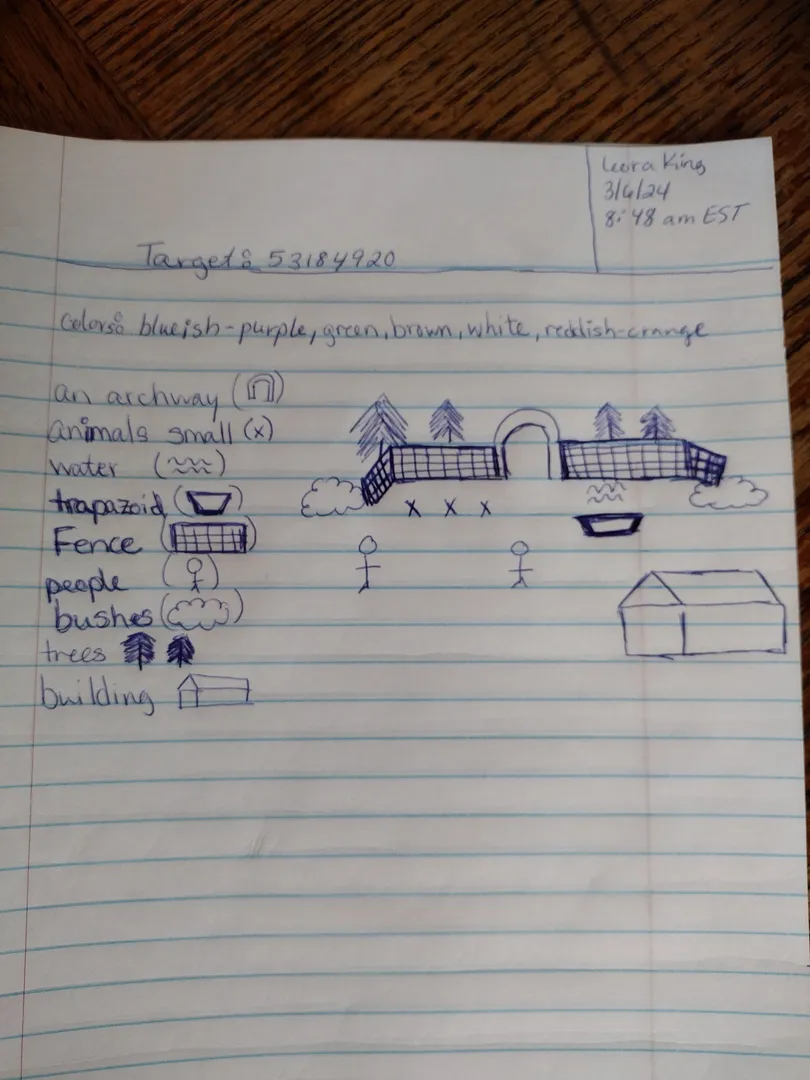 Leora King
3/6/24
8:48 am EST
Target: 53184920
Colors: blueish-purple, green, brown, white, reddish-orange
an archway ( )
animals small (x)
water ( )
trapazoid ( )
Fence ( )
people ( )
bushes ( )
trees
building
x x x